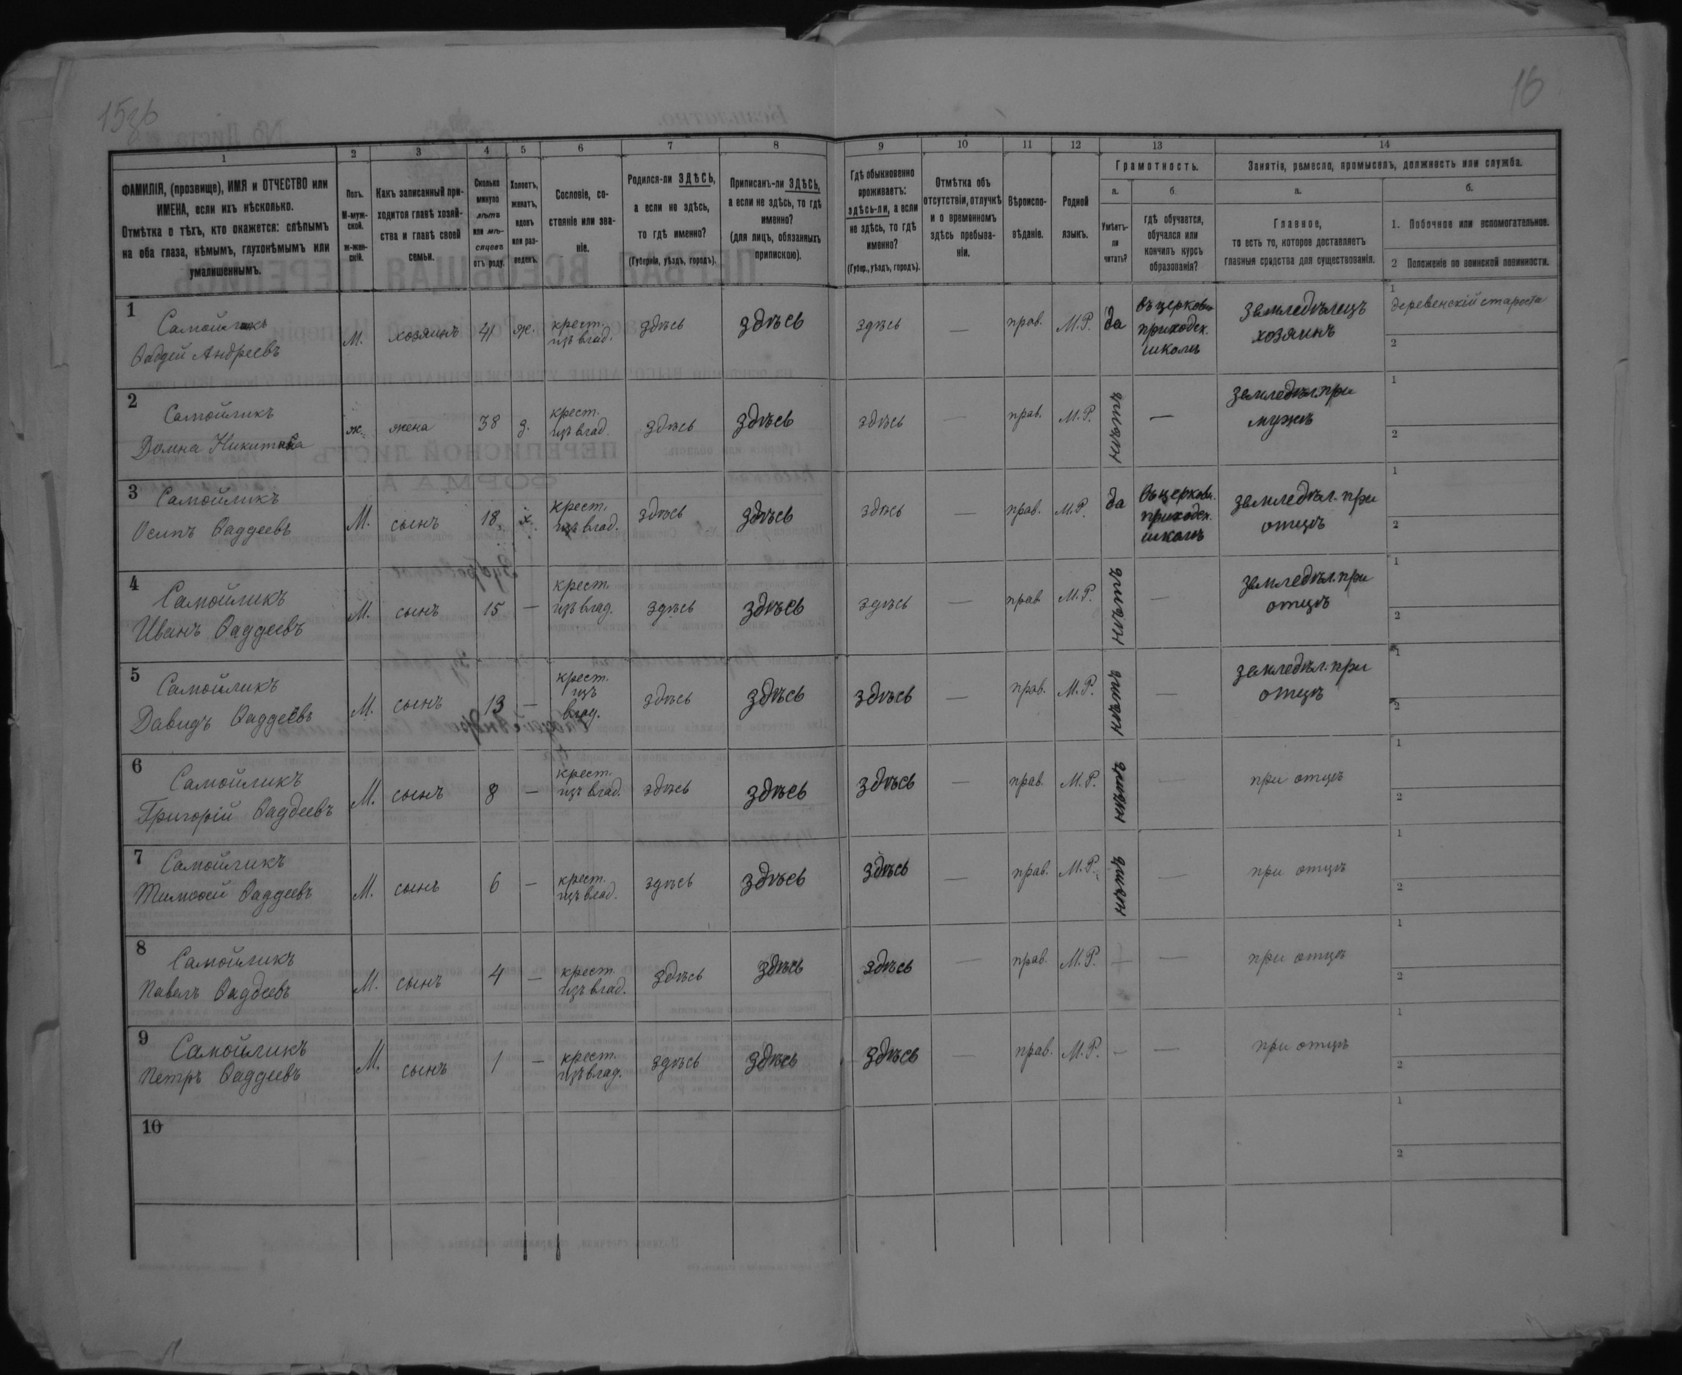 15об
16
1
2
3
4
5
6
7
8
9
10
11
12
13
14
ФАМИЛІЯ, (прозвище), ИМЯ и ОТЧЕСТВО или
ИМЕНА, если ихъ нѣсколько.
Отмѣтка о тѣхъ, кто окажется: слѣпымъ
на оба глаза, нѣмымъ, глухонѣмымъ или
умалишеннымъ.
Полъ.
М-муж-
ской.
ж-жен-
скій.
Какъ записанный при-
ходится главѣ хозяй-
ства и главѣ своей
семьи.
Сколько
минуло
лѣтъ
или мѣ-
сяцевъ
отъ роду.
Холостъ,
женатъ,
вдовъ
или раз-
веденъ.
Сословіе, со-
стояніе или зва-
ніе.
Родился-ли ЗДѢСЬ,
а если не здѣсь,
то гдѣ именно?
(Губернія, уѣздъ, городъ).
Приписанъ-ли ЗДѢСЬ,
а если не здѣсь, то гдѣ
именно?
(для лицъ, обязанныхъ
припискою).
Гдѣ обыкновенно
проживаетъ:
здѣсь-ли, а если
не здѣсь, то гдѣ
именно?
(Губер., уѣздъ, городъ).
Отмѣтка объ
отсутствіи, отлучкѣ
и о временномъ
здѣсь пребыва-
ніи.
Вѣроиспо-
вѣданіе.
Родной
языкъ.
Грамотность.
а.
б.
Умѣетъ-
ли
читать?
гдѣ обучается,
обучался или
кончилъ курсъ
образованія?
Занятія, ремесло, промыселъ, должность или служба.
а.
б.
Главное,
то есть то, которое доставляетъ
главныя средства для существованія.
1. Побочное или вспомогательное.
2 Положеніе по воинской повинности.
1
Самойликъ
Фаддей Андреевъ
М.
хозяинъ
41
ж.
крест.
изъ влад.
здѣсь
здѣсь
здѣсь
—
прав.
М.Р.
да
Въ церковн.
приходск.
школѣ
Земледѣлецъ
хозяинъ
1
деревенскій староста
2
2
Самойликъ
Домна Никитина
ж.
жена
38
з.
крест.
изъ влад
здѣсь
здѣсь
здѣсь
—
прав.
М.Р.
нѣтъ
—
Земледѣл. при
мужѣ
1
2
3
Самойликъ
Осипъ Фаддеевъ
М.
сынъ
18
х.
крест.
изъ влад.
здѣсь
здѣсь
здѣсь
—
прав.
М.Р.
да
Въ церковн.
приходск.
школѣ
земледѣл. при
отцѣ
1
2
4
Самойликъ
Иванъ Фаддеевъ
М.
сынъ
15
—
крест.
изъ влад.
здѣсь
здѣсь
здѣсь
—
прав
М.Р.
нѣтъ
—
земледѣл. при
отцѣ
1
2
5
Самойликъ
Давидъ Фаддеевъ
М.
сынъ
13
—
крест.
изъ
влад.
здѣсь
здѣсь
здѣсь
—
прав.
М.Р.
нѣтъ
—
земледѣл. при
отцѣ
1
2
6
Самойликъ
Григорій Фаддеевъ
М.
сынъ
8
—
крест.
изъ влад.
здѣсь
здѣсь
здѣсь
—
прав.
М.Р.
нѣтъ
—
при отцѣ
1
2
7
Самойликъ
Тимофей Фаддеевъ
М.
сынъ
6
—
крест.
изъ влад.
здѣсь
здѣсь
здѣсь
—
прав.
М.Р.
нѣтъ
—
при отцѣ
1
2
8
Самойликъ
Павелъ Фаддеевъ
М.
сынъ
4
—
крест.
изъ влад.
здѣсь
здѣсь
здѣсь
—
прав.
М.Р.
—
—
при отцѣ
1
2
9
Самойликъ
Петръ Фаддеевъ
М.
сынъ
1
—
крест.
изъ влад.
здѣсь
здѣсь
здѣсь
—
прав.
М.Р.
—
—
при отцѣ
1
2
10
1
2